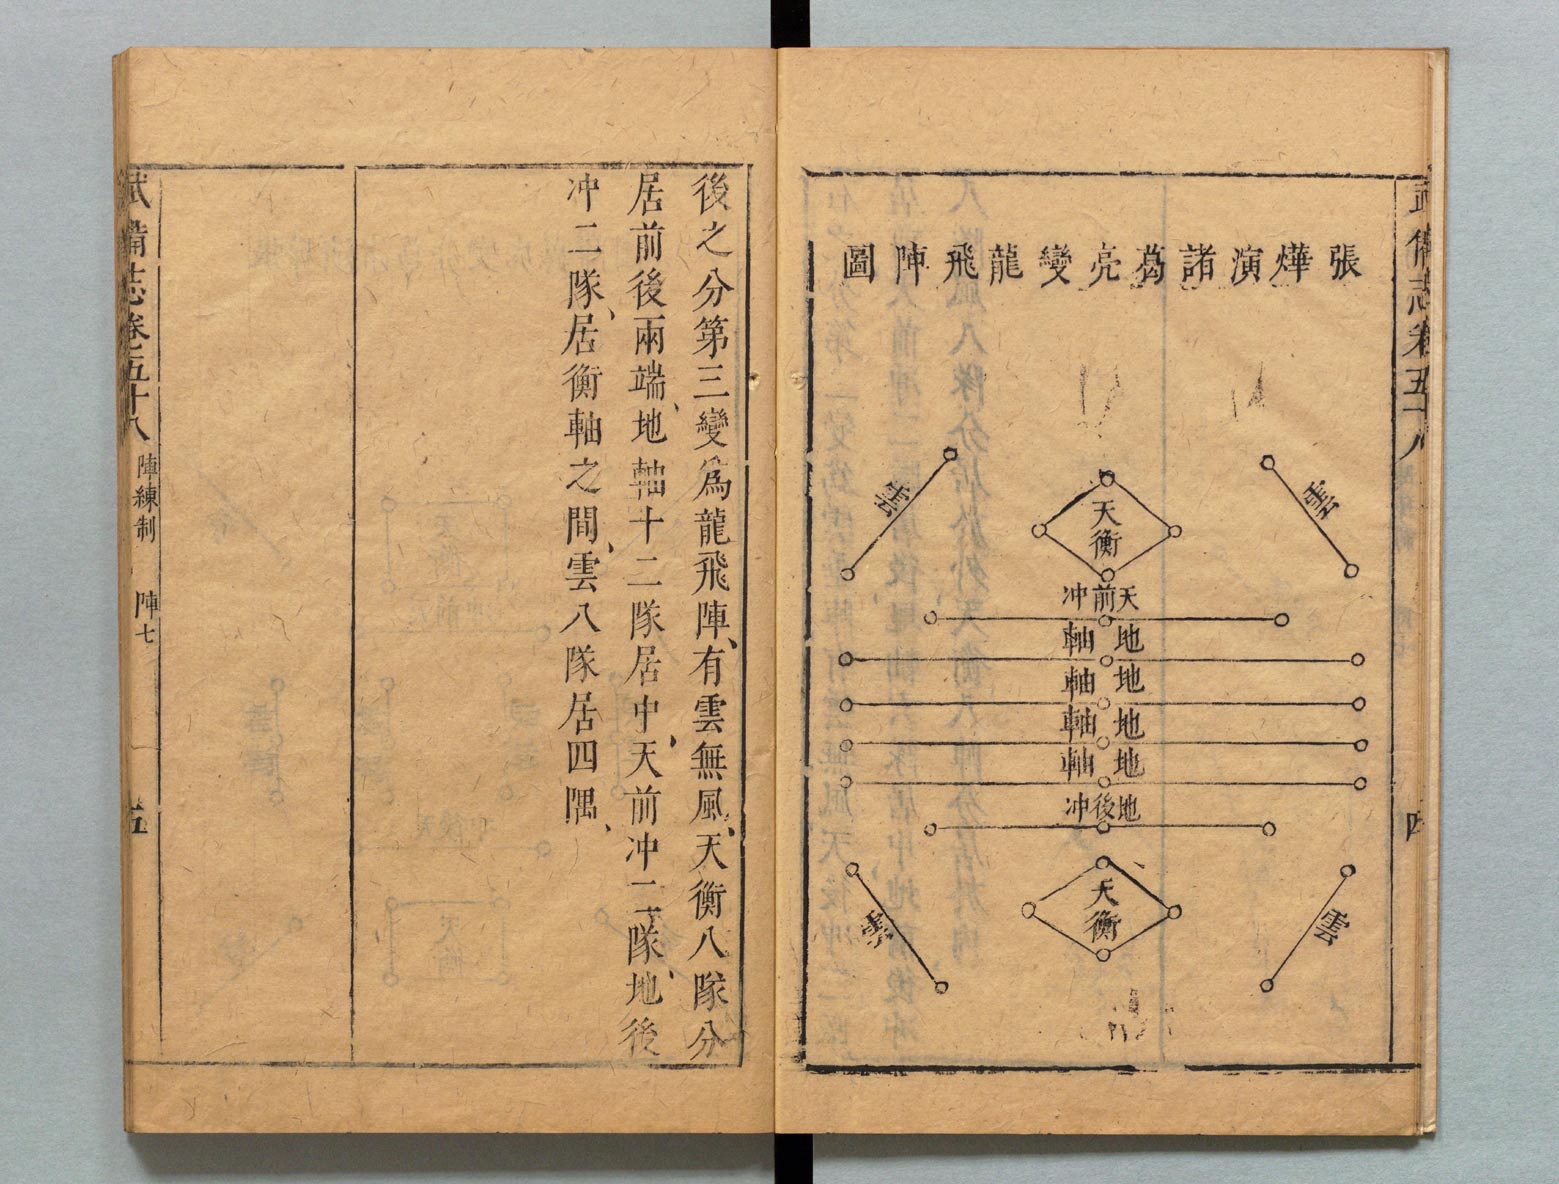 武備志卷五十八
四
張燁演諸葛亮變龍飛陣圖
雲
天衡
雲
天前冲
地軸
地軸
地軸
地軸
地後冲
雲
天衡
雲
後之分第三變爲龍飛陣、有雲無風、天衡八隊分
居前後兩端、地軸十二隊居中、天前冲二隊、地後
冲二隊、居衡軸之間、雲八隊居四隅、
武備志卷五十八 陣練制 陣七 五